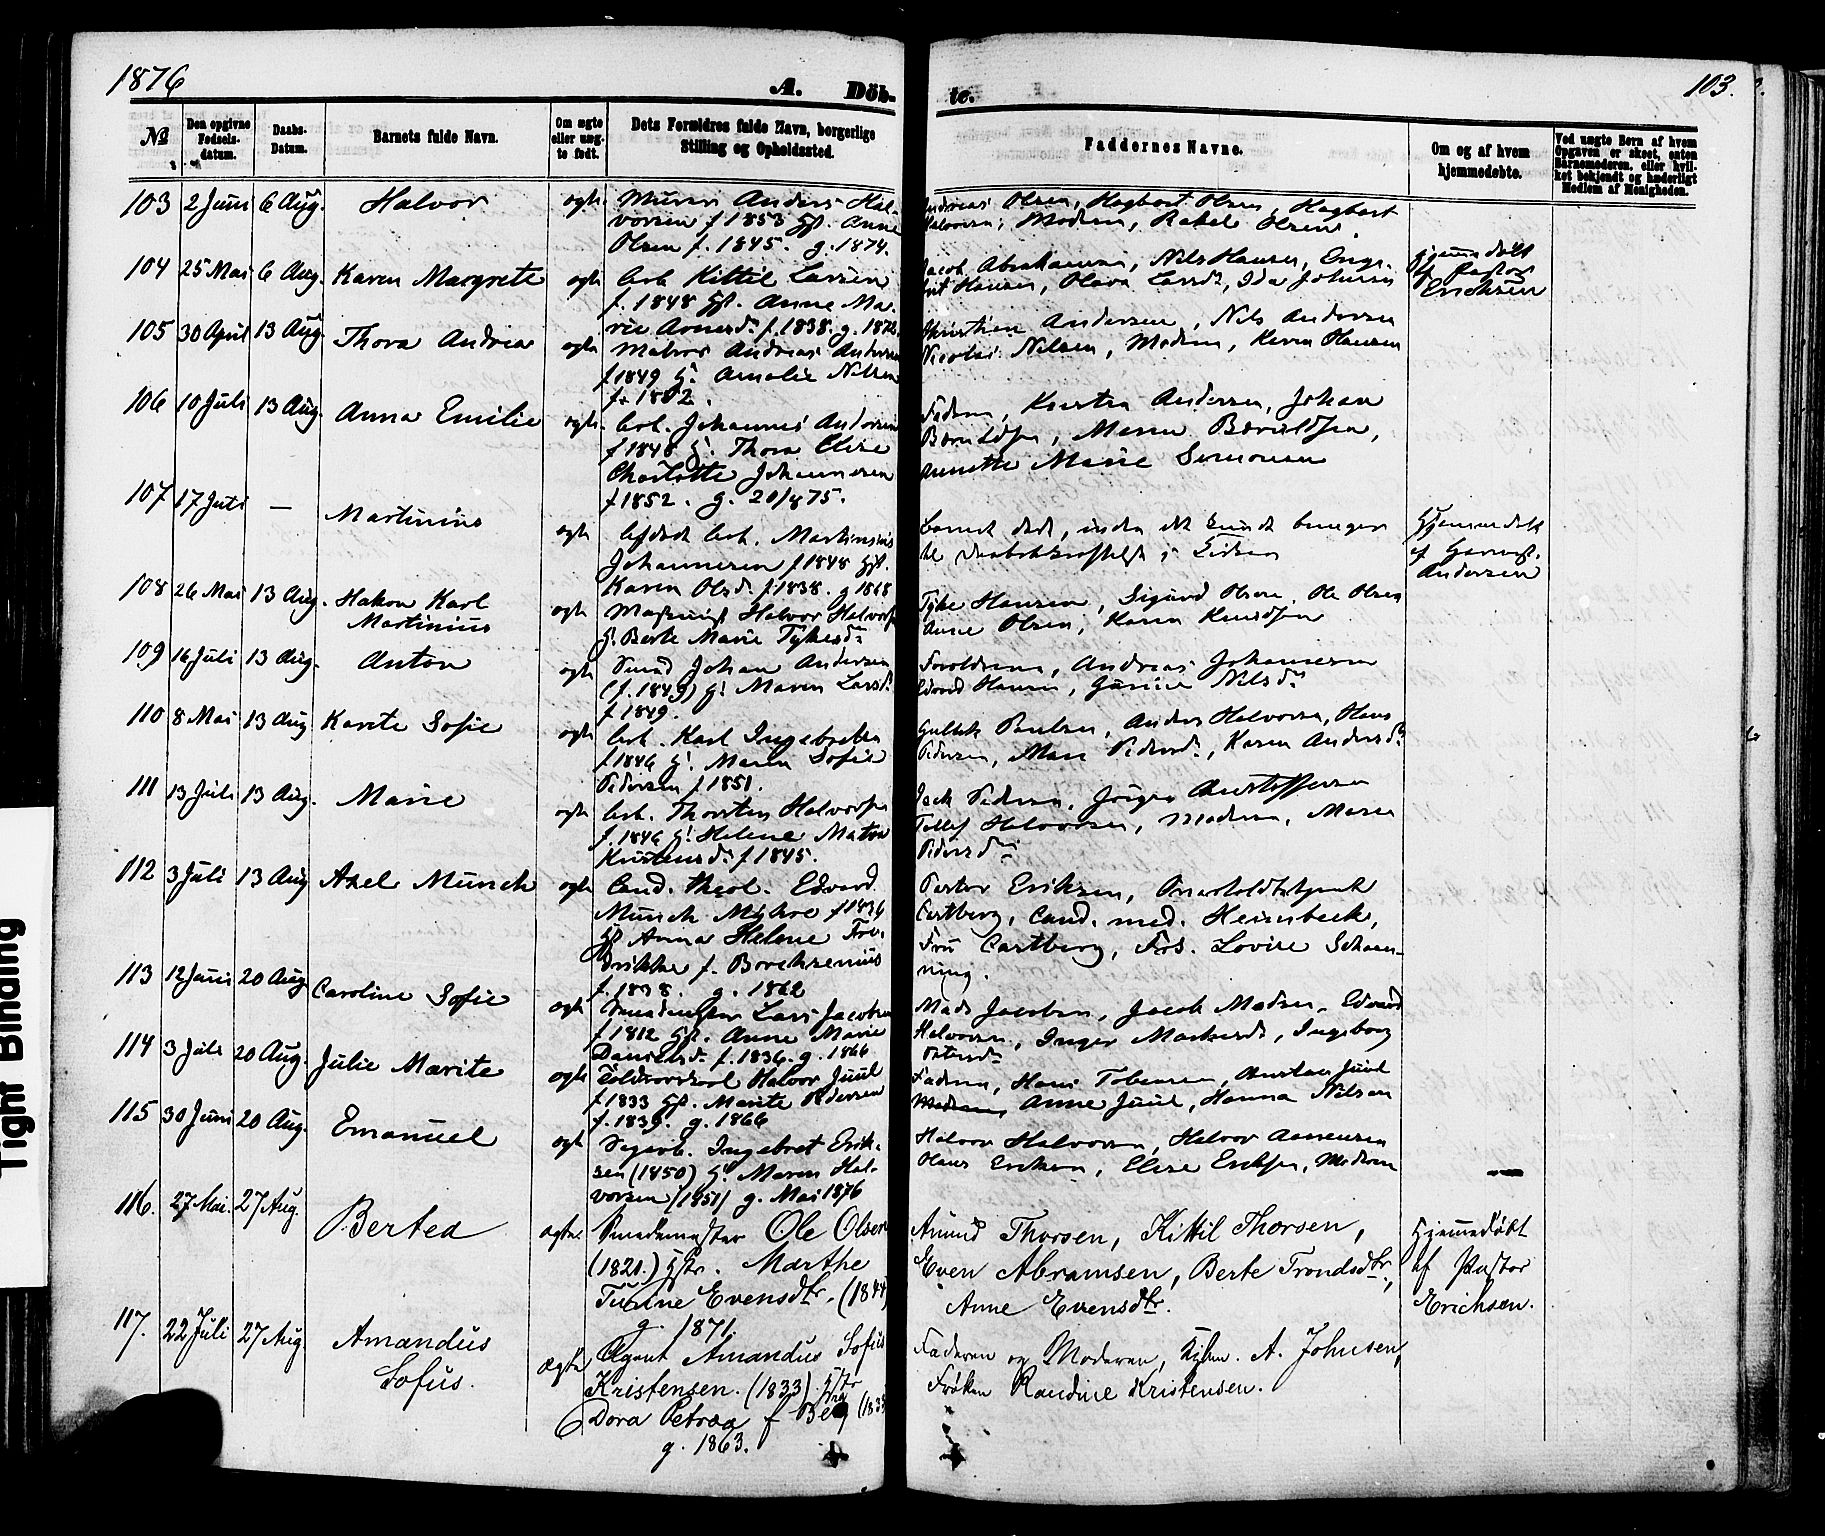 1876
A. Döb-
te.
103.
№
Den opgivne
Fødsels-
datum.
Daabs-
Datum.
Barnets fulde Navn.
Om ægte
eller uæg-
te født.
Dets Forældres fulde Navn, borgerlige
Stilling og Opholdssted.
Faddernes Navne.
Om og af hvem
hjemmedøbte.
Ved uægte Børn af hvem
Opgaven er skeet, enten
Barnemoderen, eller hvil-
ket bekjendt og hæderligt
Medlem af Menigheden.
103 2 Juni 6 Aug. Halvor ægte Murer Anders Hal-
vorsen f 1853 Hst. Anne
Olsen f. 1845. g. 1874.
Andreas Olsen, Hagbart Olsen, Hagbart
Halvorsen, Moderen, Rakel Olsen.
104 25 Mai 6 Aug. Karen Margrete ægte Arb Kittil Larsen
f. 1848 Hst. Anne Ma-
rie f. 1838. g. 1872
Jacob Abrahamsen, Nils Hansen, Enge-
Hansen, Olava Larsd, Ida Johnsen
Hjemmedøbt
af Pastor
Erichsen
105 30 April 13 Aug. Thora Andrea ægte Matros Andreas Andersen
f 1849 H. Amalie Nilsen
f. 1852.
Kristian Andersen, Nils Andersen
Nicolai Nilsen, Moderen, Karen Hansen
106 10 Juli 13 Aug. Anna Emilie ægte Arb. Johannes Andersen
f 1848 H. Thora Elise
Charlotte Johannesen
f 1852. g. 20/ 75.
Faderen, Andersen, Johan
Maren
Annette Marie Simonsen
107 17 Juli — Martinius ægte Afdøde Arb. Martinius
Johannesen f 1848 Hst.
Karen Olsd. f. 1838. g 1868
Barnet døde, inden det kunde bringes
til i Kirken
Hjemmedøbt
af
Andersen
108 26 Mai 13 Aug. Hakon Karl
Martinius
ægte Halvor Halvorsen
H. Berte Marie Tykesd.
Tyke Hansen, Sigurd Olsen, Ole Olsen
Anne Olsen, Karen Knudsen
109 16 Juli 13 Aug. Anton ægte Smed Johan Andersen
(f. 1849) H. Maren Larsd.
f 1849.
Forældrene, Andreas Johannesen
Edvard Hansen, Nilsd.
110 8 Mai 13 Aug Karete Sofie ægte Arb. Karl Ingebretsen
f 1846 H. Maren Sofie
Pedersen f 1851.
Paulsen, Anders Halvorsen, Hans
Pedersen, Mari Pedersd., Karen Andersd.
111 13 Juli 13 Aug. Marie ægte Arb. Thorsten Halvorsen
f. 1846 H. Helene Matea
Kristensd. f 1845.
Jack Pedersen, Jörgen Christoffersen
Tellef Halvorsen, Moderen, Maren
Pedersd.
112 3 Juli 13 Aug Axel Münch ægte Cand. theol. Edvard
Münch Myhre f 1836
Hst Anna Helene Fre-
drikke f. Borchsenius
f. 1838. g. 1862
Pastor Eriksen, Overtoldbetjent
Castberg, Cand. med. Heimbeck,
Fru Castberg, Frk. Lovise Schaan-
ning.
113 12 Juni 20 Aug Caroline Sofie ægte Lars Jacobsen
f 1812 Hst. Anne Marie
Danielsd. f. 1836. g. 1866
Mads Jacobsen, Jacob Madsen, Edvard
Halvorsen, Inger Markusd., Ingeborg
114 3 Juli 20 Aug. Julie Marite ægte Halvor Juul
f 1833 Hst. Marite Pedersen
f. 1839. g. 1866
Faderen, Hans Tobiassen, Christian Juul
Moderen, Anne Juul, Hanna Nilsen
115 30 Juni 20 Aug. Emanuel ægte Ingebret Erik-
sen (1850) H. Maren Hal-
vorsen (1851) g. Mai 1876
Halvor Halvorsen, Halvor Aanensen
Hans Eriksen, Elise Eriksen, Moderen
116. 27 Mai. 27 Aug. Bertea ægte. Smedemester Ole Olsen
(1821.) Hstr. Marthe
Turine Evensdtr. (1844)
g. 1871.
Amund Thorsen, Kittil Thorsen,
Even Abramsen, Berte Trondsdtr.,
Anne Evensdtr.
Hjemmedøbt
af Pastor
Erichsen.
117. 22 Juli 27 Aug Amandus
Sofus.
Ægte Agent Amandus Sofus
Kristensen. (1833) Hstr
Dora Petrea f Berg (1833
g. 1863.
Faderen og Moderen, Kjbm. A. Johnsen,
Frøken Randine Kristensen.
Tight Binding